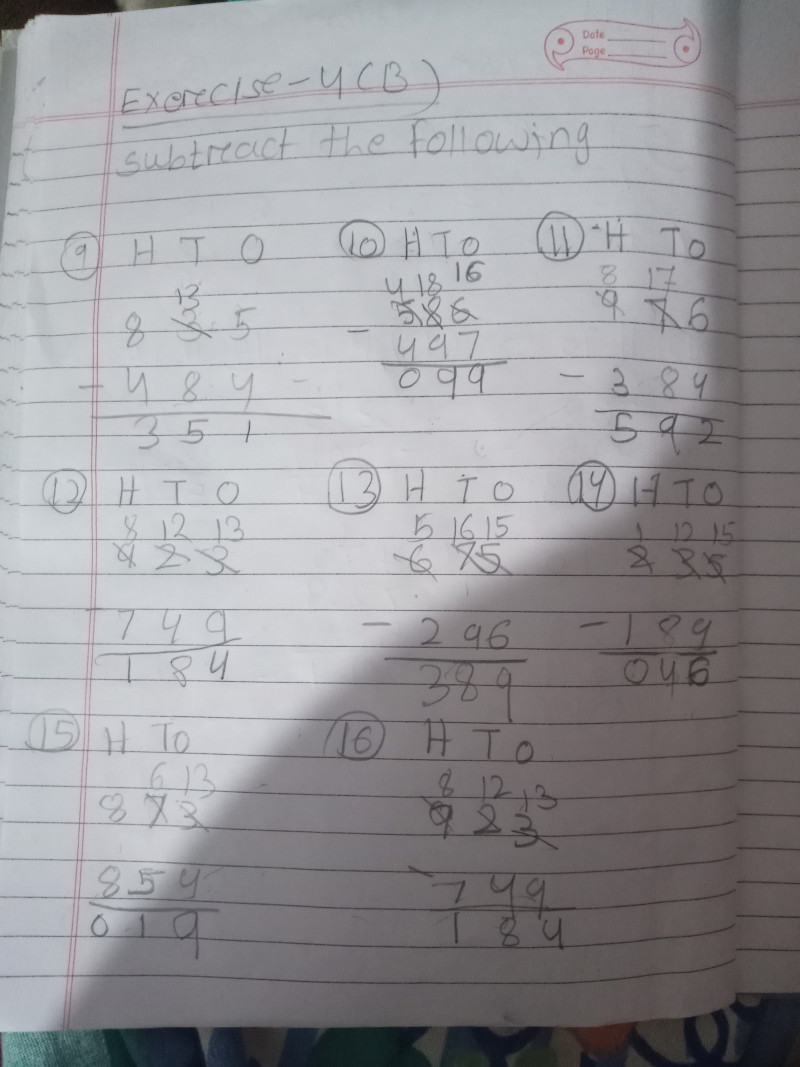 Date
Page
Exercise-4(B)
subtreact the following
9 H T O
13
8 3 5
- 4 8 4 -
3 5 1
10 H T O
4 18 16
5 8 6
- 4 9 7
0 9 9
11 H T O
8 17
9 7 6
- 3 8 4
5 9 2
12 H T O
8 12 13
9 2 3
- 7 4 9
1 8 4
13 H T O
5 16 15
6 7 5
- 2 9 6
3 8 9
14 H T O
1 12 15
2 3 5
- 1 8 9
0 4 6
15 H T O
6 13
8 7 3
8 5 4
0 1 9
16 H T O
8 12 13
9 2 3
- 7 4 9
1 8 4